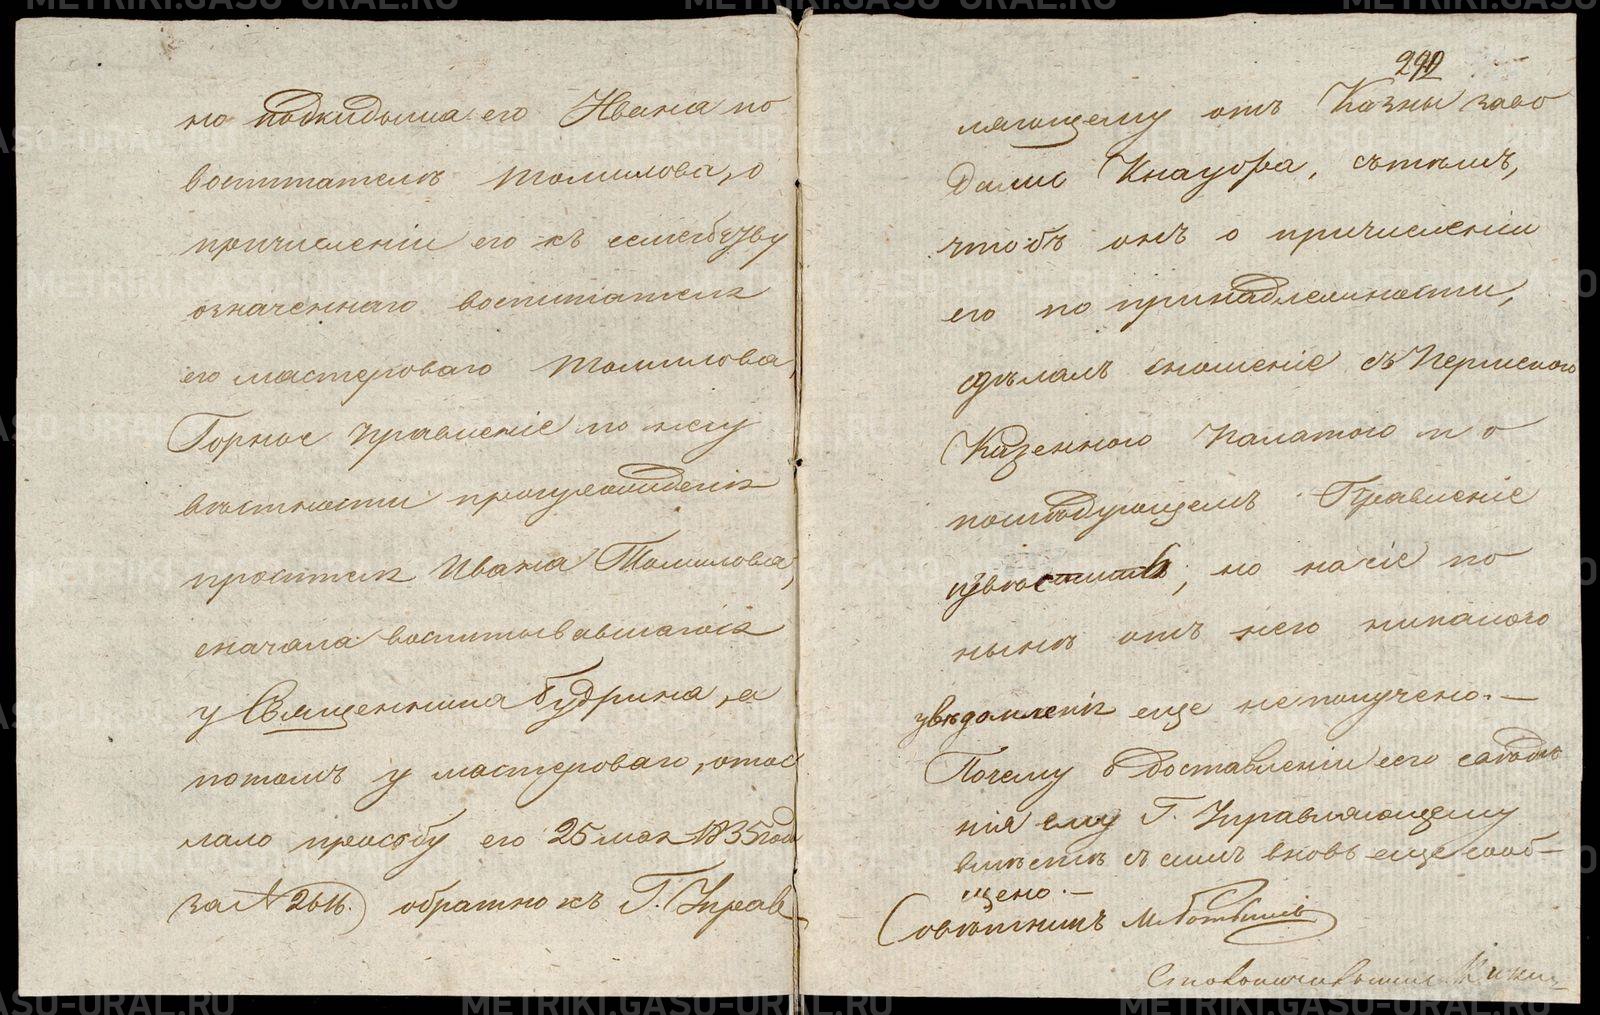 но подкидыша его Ивана по
воспитателѣ Томилова, о
причисленіи его къ семейству
означеннаго воспитателя
его мастероваго Томилова,
Горное Правленіе по не
вѣстности произхожденія
просителя Ивана Томилова,
сначала воспитывавшагося
у Священника Будрина, а
потомъ у мастероваго, отос
лало прозьбу его 25 мая 1835 года
за № обратно къ Г. Управ
291
ляющему отъ Казны заво
дами Кнауфа, съ тѣмъ,
чтобъ онъ о причисленіи
его по принадлежности,
сдѣлалъ сношеніе съ Пермскою
Казенною Палатою и о
послѣдующемъ Правленіе
извѣстилъ, но на сіе по
нынѣ отъ него никакого
увѣдомленія еще не получено.—
Почему о доставленіи сего свѣдѣ
нія ему Г. Управляющему
вмѣстѣ съ симъ вновь еще сооб-
щено.—
Совѣтникъ
Столоначальникъ
METRIKI.GASO-URAL.RU